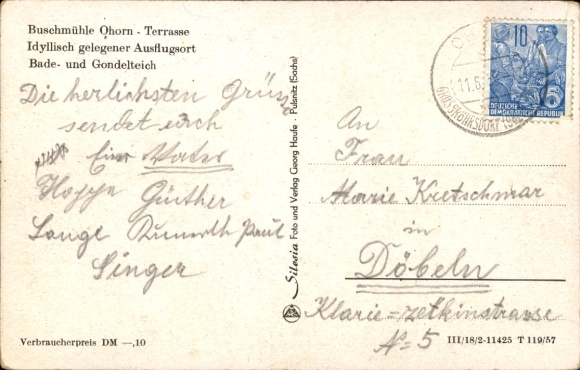 Buschmühle Ohorn - Terrasse
Idyllisch gelegener Ausflugsort
Bade- und Gondelteich
Die herlichsten Grüsse
sendet euch
Vater
Hoppe Günther
Lange Paul
Singer
Verbraucherpreis DM —,10
Silesia Foto und Verlag Georg Haufe · Pulsnitz (Sachs)
10
DEUTSCHE
DEMOKRATISCHE REPUBLIK
5
11.6.
An
Frau
Marie Kretschmar
in
Döbeln
Klarie-zetkinstrasse
No 5
III/18/2-11425 T 119/57